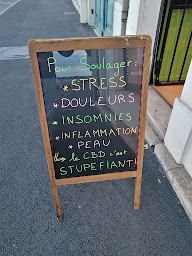 Pour Soulager:
* STRESS
* DOULEURS
* INSOMNIES
* INFLAMMATION
PEAU
le CBD c'est
STUPEFIANT!